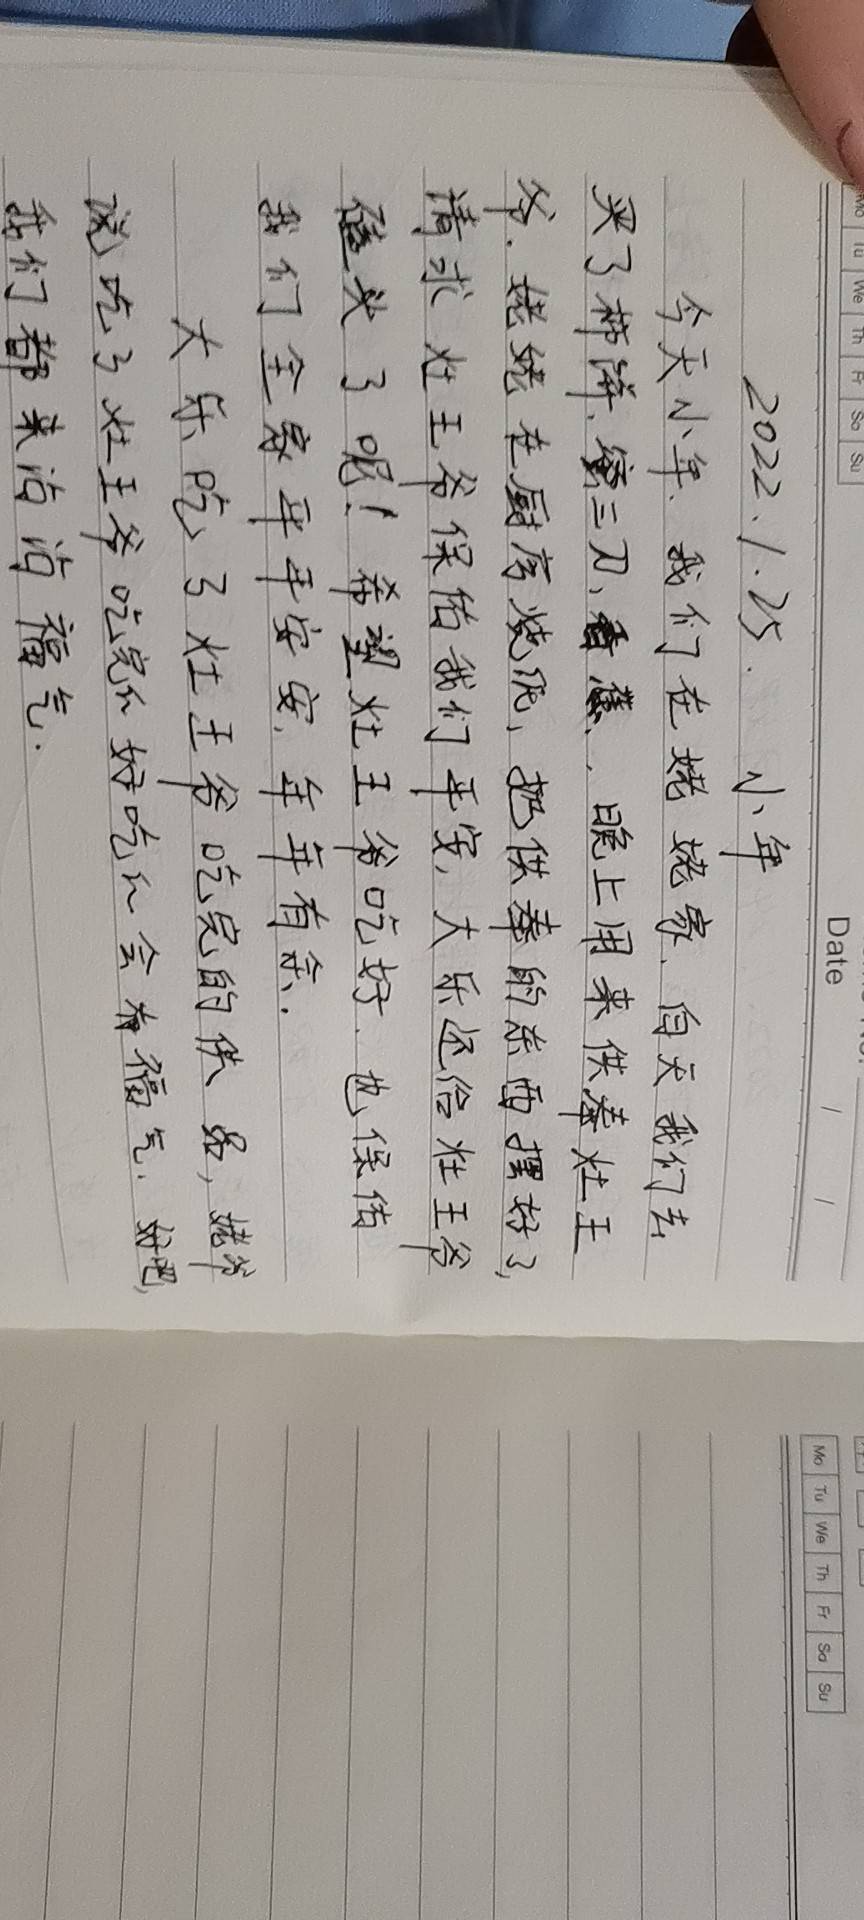 Mo Tu We Th Fr Sa Su
Date / /
2022.1.25. 小年
今天小年、我们在姥姥家、白天我们去
买了柿饼、蜜三刀、香蕉、、晚上用来供奉灶王
爷. 姥姥在厨房烧纸, 把供奉的东西摆好了,
请求灶王爷保佑我们平安, 大乐还给灶王爷
磕头了呢! 希望灶王爷吃好. 也保佑
我们全家平平安安, 年年有余.
大乐吃了灶王爷吃完的供品, 姥爷
说吃了灶王爷吃完儿好吃儿会有福气. 好吧,
我们都来沾沾福气.
Mo Tu We Th Fr Sa Su